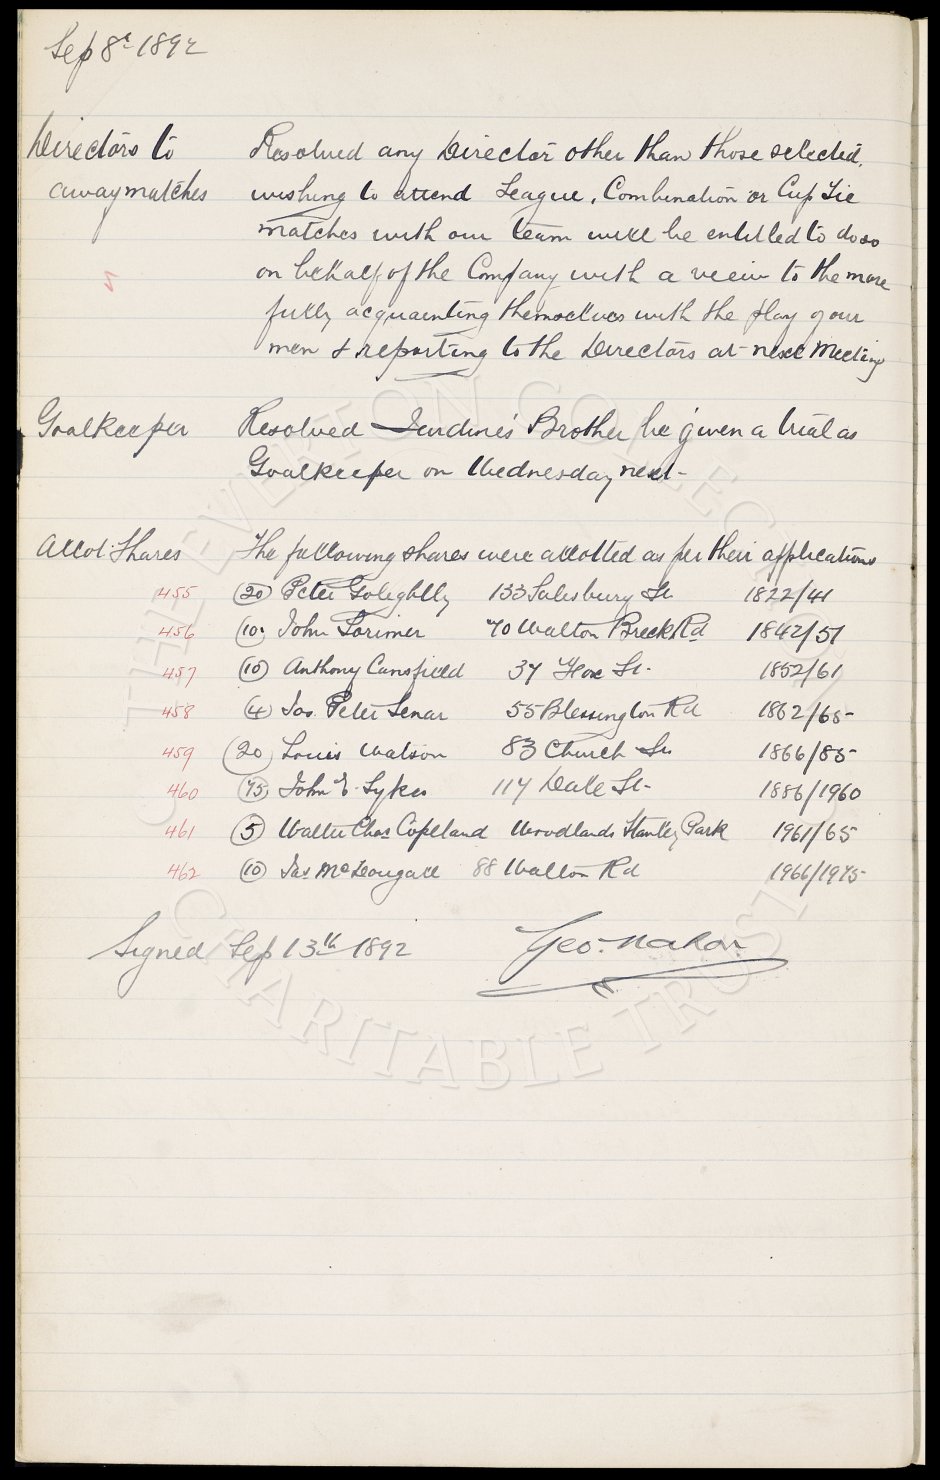 Sep 8th 1892
Directors to away matches
Resolved any Director other than those selected,
wishing to attend League, Combination or Cup Tie
matches with our team will be entitled to do so
on behalf of the Company with a veiw to the more
fully acquainting themselves with the play of our
men & reporting to the Directors at next Meeting
Goalkeeper
Resolved Jardine's Brother be given a trial as
Goalkeeper on Wednesday next-
Allot: Shares
The following shares were allotted as per their applications
455 (20) Peter Golightly 133 Salesbury St 1822/41
456 (10) John Lorimer 70 Walton Breck Rd 1842/51
457 (10) Anthony Cansfield 37 St. 1852/61
458 (4) Jas. Peter Lenar 55 Blessington Rd 1862/65
459 (20) Louis Watson 83 Church St 1866/85
460 (75) John E. Sykes 117 Dale St. 1886/1960
461 (5) Walter Chas Copeland Woodlands Stanley Park 1961/65
462 (10) Jas McDougall 88 Walton Rd 1966/1975
Signed Sep 13th 1892 Geo. Mahon
THE EVERTON COLLECTION
CHARITABLE TRUST